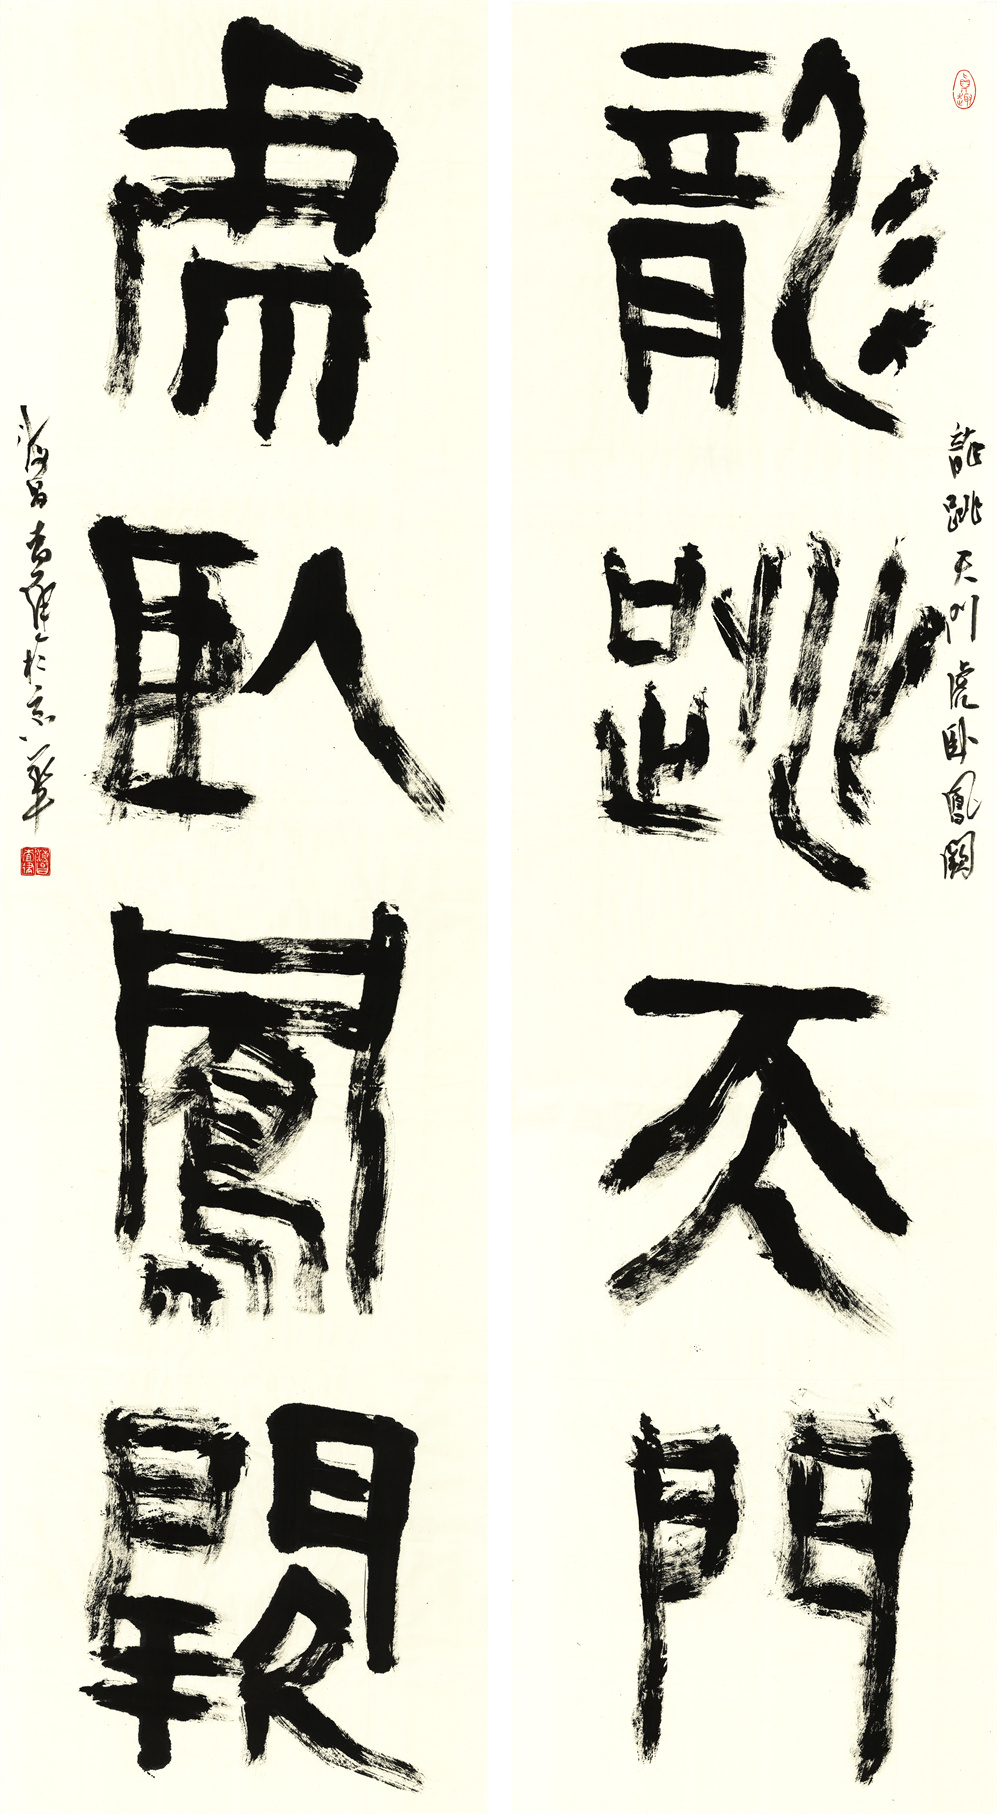 龍跳天門
龍跳天門虎卧鳳闕
虎卧鳳闕